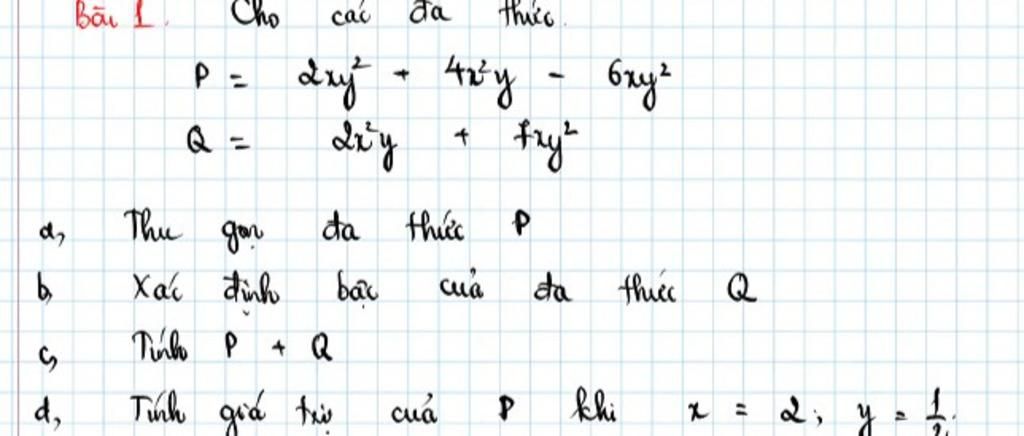 Bài 1. Cho các đa thức.
P = 2xy² + 4x²y - 6xy²
Q = 2x²y + 7xy²
a, Thu gọn đa thức P
b, Xác định bậc của đa thức Q
c, Tính P + Q
d, Tính giá trị của P khi x = 2; y = 1/2.